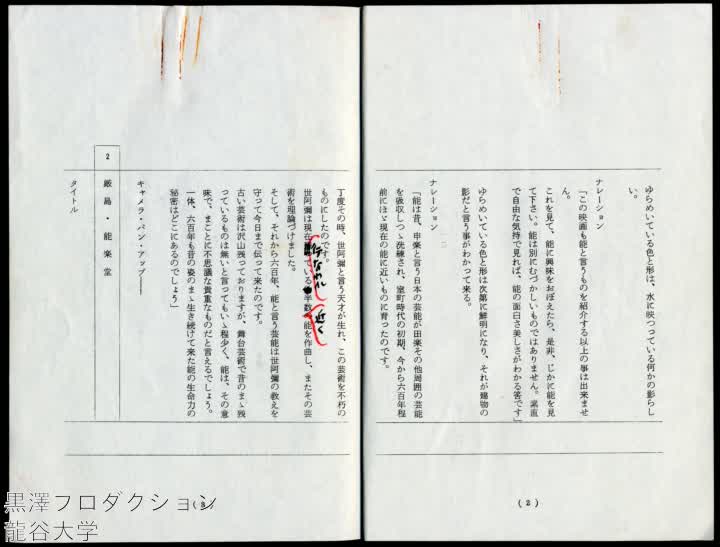 ゆらめいている色と形は、水に映つっている何かの影らし
い。
ナレーション
「この映画も能と言うものを紹介する以上の事は出来ませ
ん。
これを見て、能に興味をおぼえたら、是非、じかに能を見
て下さい。能は別にむづかしいものではありません。素直
で自由な気持で見れば、能の面白さ美しさがわかる筈です」
ゆらめいている色と形は次第に鮮明になり、それが建物の
影だと言う事がわかって来る。
ナレーション
「能は昔、申楽と言う日本の芸能が田楽その他周囲の芸能
を吸収しつゝ洗練され、室町時代の初期、今から六百年程
前にほゞ現在の能に近いものに育ったのです。
(2)
丁度その時、世阿彌と言う天才が生れ、この芸術を不朽の
ものにしたのです。
世阿彌は現在行なわれている半数近く能を作曲し、またその芸
術を理論づけました。
そして、それから六百年、能と言う芸能は世阿彌の教えを
守って今日まで伝って来たのです。
古い芸術は沢山残っておりますが、舞台芸術で昔のまゝ残
っているものは無いと言ってもいゝ程少く、能は、その意
味で、まことに不思議な貴重なものだと言えるでしょう。
一体、六百年も昔の姿のまゝ生き続けて来た能の生命力の
秘密はどこにあるのでしょう」
キャメラ・パン・アップ――
2 厳島・能楽堂
タイトル
(3)
黒澤フロダクション
龍谷大学